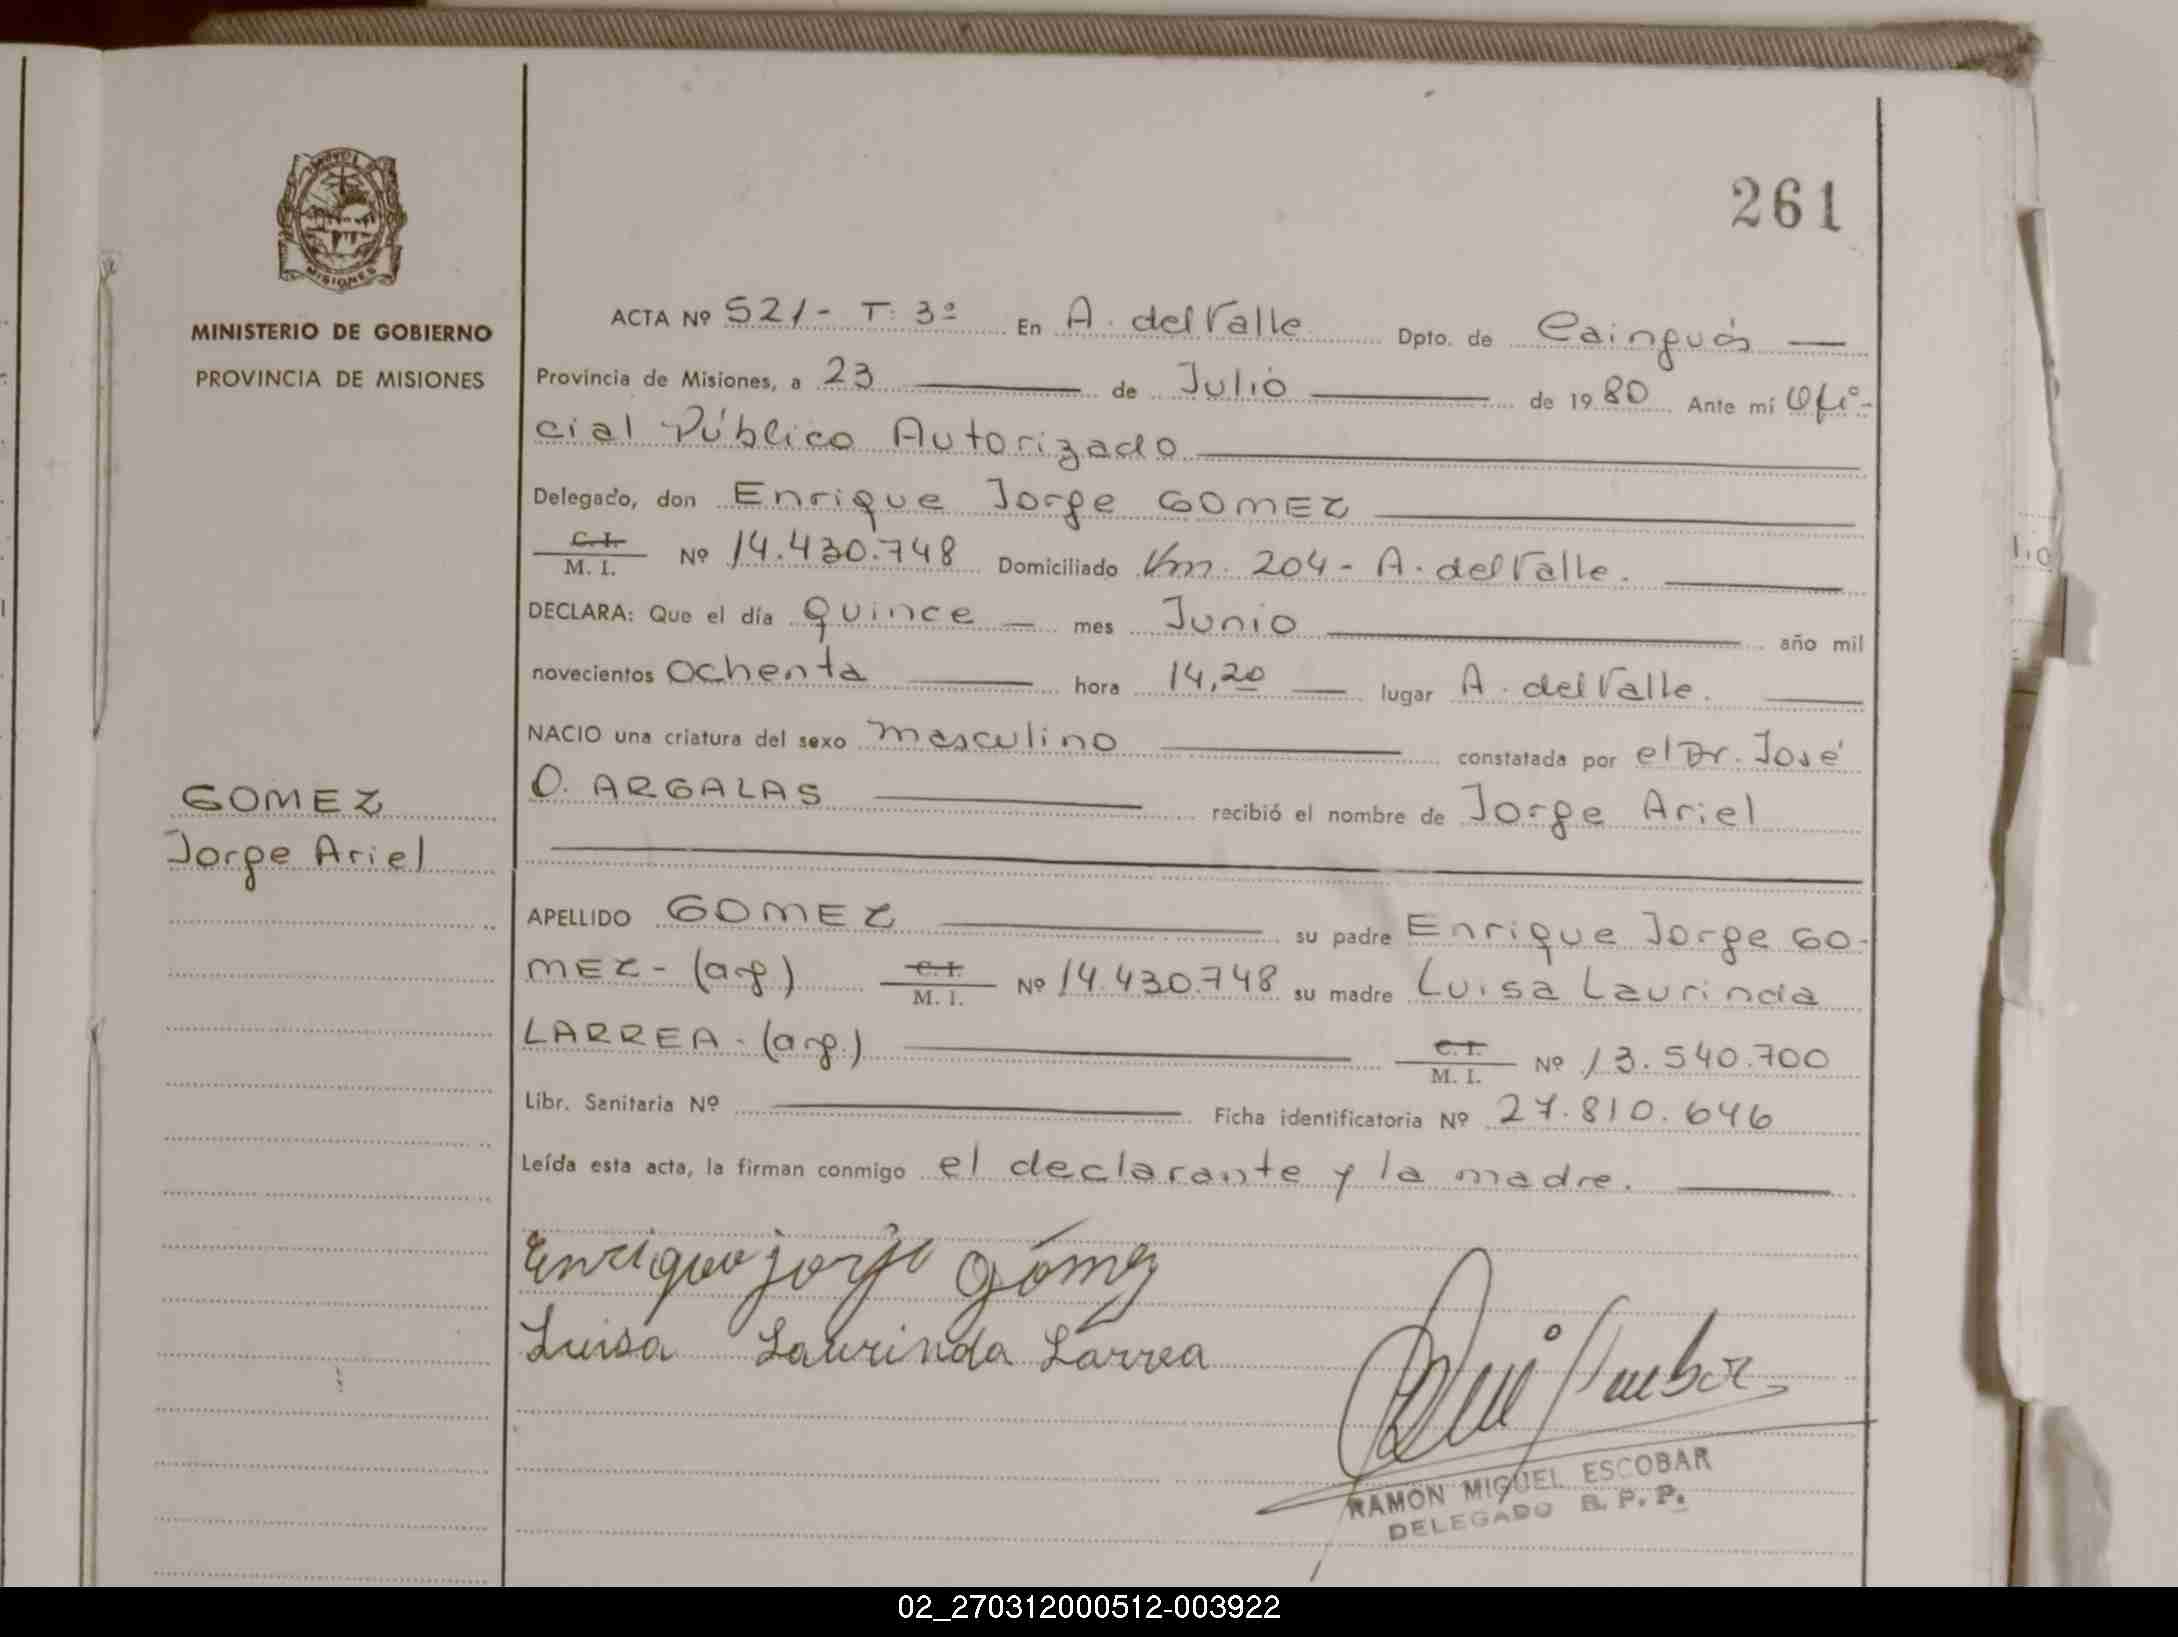 261
MISIONES
MINISTERIO DE GOBIERNO
PROVINCIA DE MISIONES
GOMEZ
Jorge Ariel
ACTA Nº 521- T: 3º En A. del Valle Dpto. de Cainguás
Provincia de Misiones, a 23 de Julio de 1980 Ante mí Ofi-
cial Público Autorizado
Delegado, don Enrique Jorge GOMEZ
C.I.
M. I. Nº 14.430.748 Domiciliado Km. 204 - A. del Valle.
DECLARA: Que el día quince mes Junio año mil
novecientos ochenta hora 14,20 lugar A. del Valle.
NACIO una criatura del sexo masculino constatada por el Dr. José
O. ARGALAS recibió el nombre de Jorge Ariel
APELLIDO GOMEZ su padre Enrique Jorge GO-
MEZ - (arg) C.I. M. I. Nº 14.430.748 su madre Luisa Laurinda
LARREA - (arg.) C.I. M. I. Nº 13.540.700
Libr. Sanitaria Nº Ficha identificatoria Nº 27.810.646
Leída esta acta, la firman conmigo el declarante y la madre.
Enrique jorje Gómez
Luisa Laurinda Larrea
RAMON MIGUEL ESCOBAR
DELEGADO R. P. P.
02_270312000512-003922